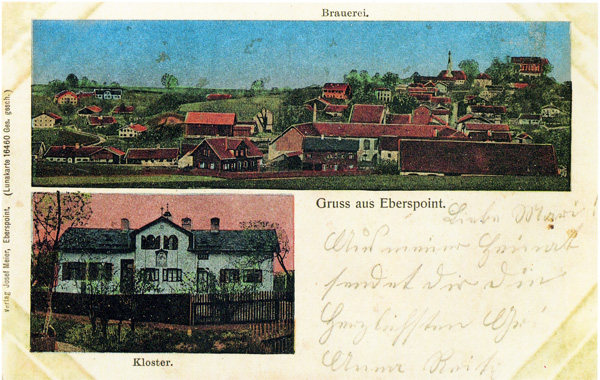 Brauerei.
Gruss aus Eberspoint.
Kloster.
Verlag Josef Meier, Eberspoint, (Lunakarte 16460 Ges. gesch.)
Liebe Mari!
Aus meiner Heimat
sendet Dir die
Herzlichsten
Anna